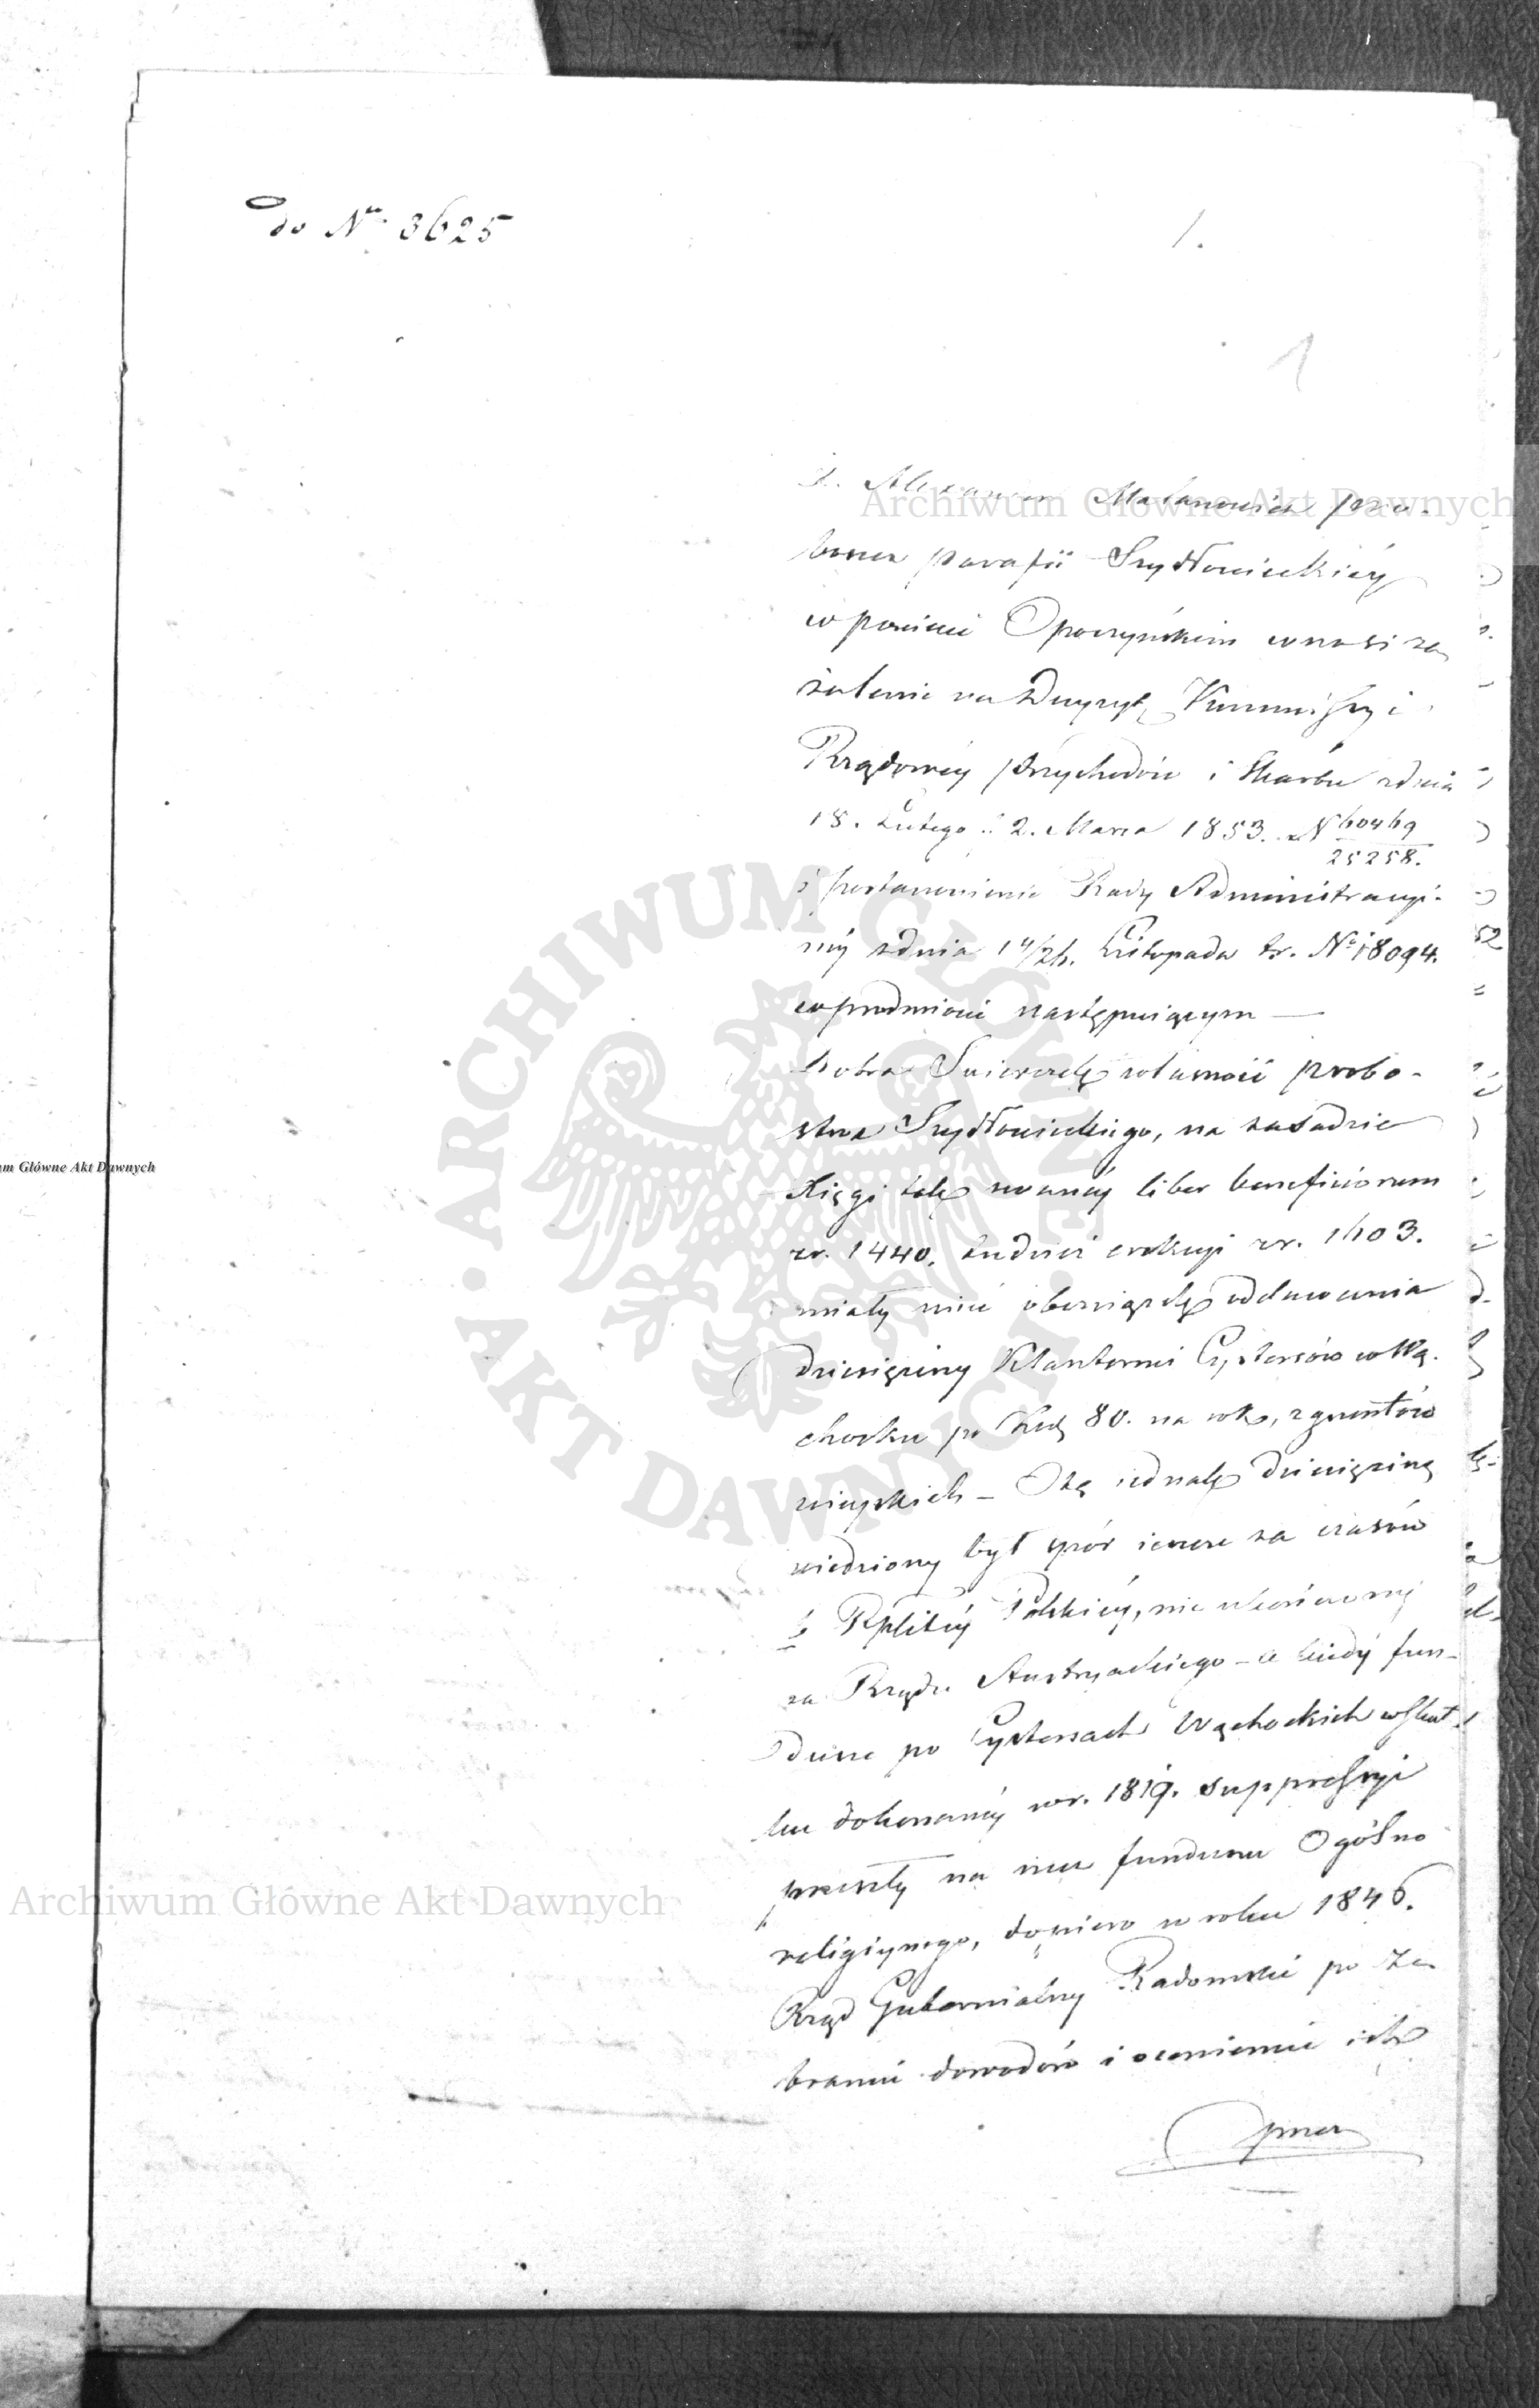 do No 3625
1.
1
X. Alexander Malanowicz pro-
boszcz parafii Szydłowieckiéy
w powiecie Opoczyńskim wnosi za
żalenie na decyzyę Kommissyi
Rządowéy Przychodów i Skarbu z dnia
18. Lutego 2. Marca 1853. N 60469
25258.
i postanowienie Rady Administracyi-
néy z dnia 14/26. Listopada tr. No 18094.
w przedmiocie następuiącym —
Dobra Świerczek własność probo-
stwa Szydłowieckiego, na zasadzie
Xięgi tak zwanéy liber beneficiorum
z r. 1440. tudzież erekcyi z r. 1603.
miały mieć obowiązek oddawania
dziesięciny Klasztorowi Cystersów w Wą-
chocku po 80. na rok, z gruntów
wieyskich — O tę iednak dziesięcinę
wiedziony był spór ieszcze za czasów
b. Rplitéy Polskiéy, nie ukończony
za Rządu Austryackiego — a kiedy fun-
dusze po Cystersach Wąchockich w skut-
ku dokonanéy w r. 1819. suppressyi
przeszły na rzecz funduszu Ogólno
religiynego, dopiero w roku 1846.
Rząd Gubernialny Radomski po ze-
braniu dowodów i ocenieniu ich
przez
Archiwum Główne Akt Dawnych
Archiwum Główne Akt Dawnych
um Główne Akt Dawnych
ARCHIWUM GŁÓWNE • AKT DAWNYCH •